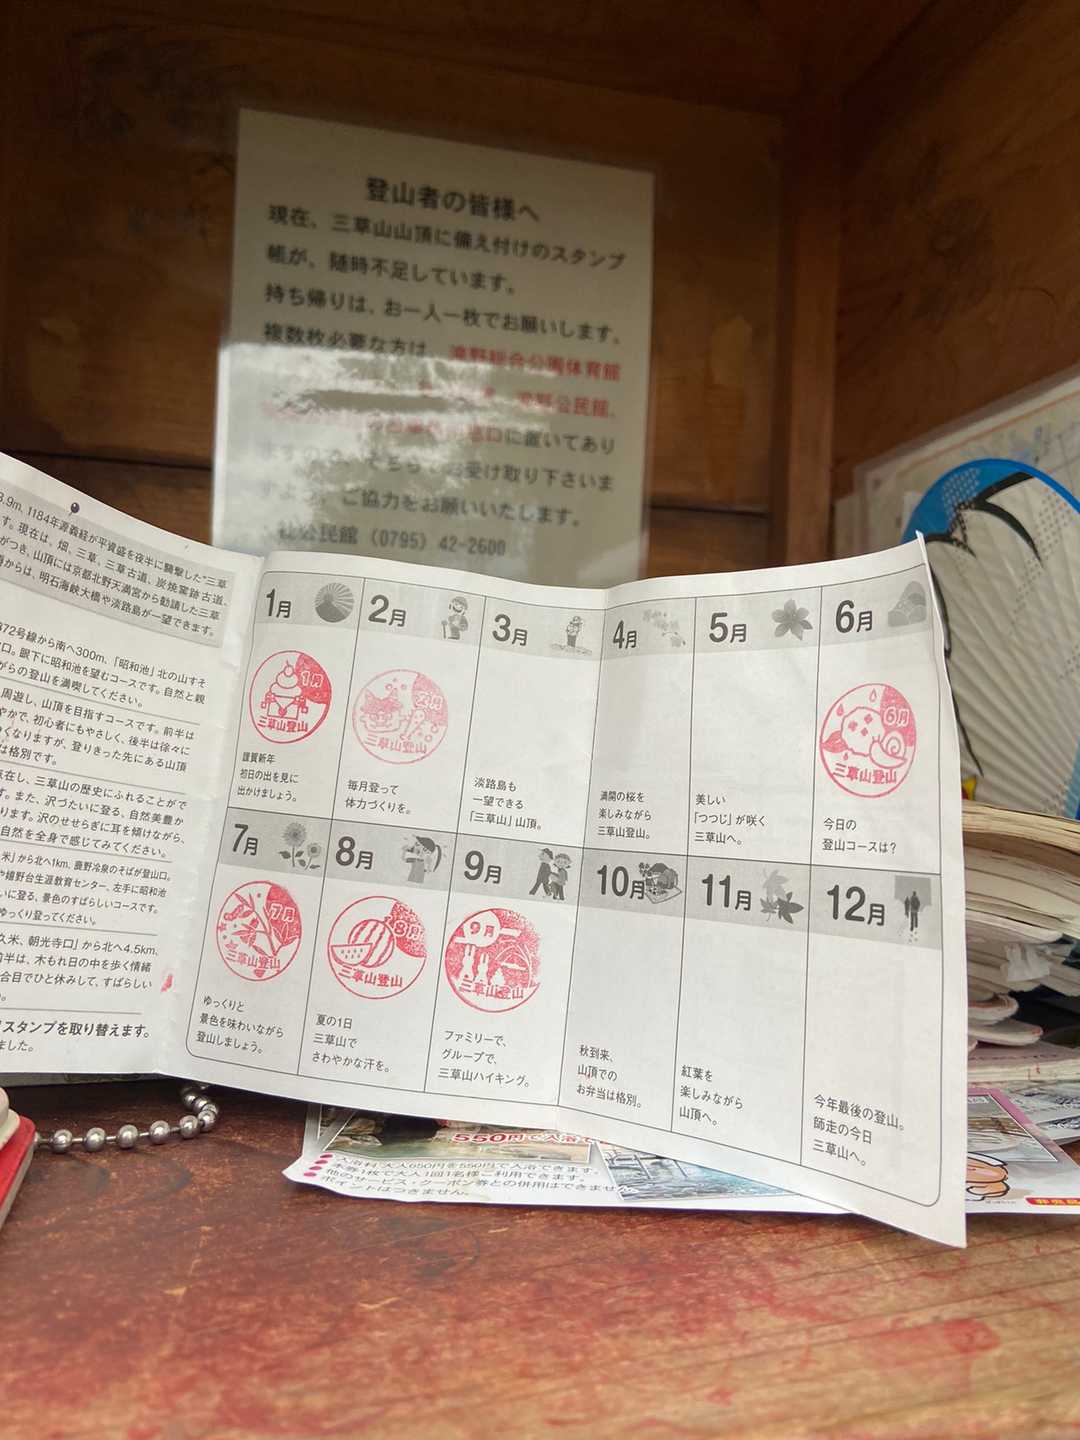 登山者の皆様へ
現在、三草山山頂に備え付けのスタンプ
帳が、随時不足しています。
持ち帰りは、お一人一枚でお願いします。
複数枚必要な方は、滝野総合公園体育館
滝野公民館、
窓口に置いてあり
ますので、そちらでお受け取り下さいま
すよう、ご協力をお願いいたします。
社公民館 (0795) 42-2600
3.9m, 1184年源義経が平資盛を夜半に襲撃した"三草
す。現在は、畑、三草、三草古道、炭焼窯跡古道、
がつき、山頂には京都北野天満宮から勧請した三草
からは、明石海峡大橋や淡路島が一望できます。
372号線から南へ300m、「昭和池」北の山すそ
口。眼下に昭和池を望むコースです。自然と親
がらの登山を満喫してください。
周遊し、山頂を目指すコースです。前半は
やかで、初心者にもやさしく、後半は徐々に
くなりますが、登りきった先にある山頂
は格別です。
点在し、三草山の歴史にふれることがで
す。また、沢づたいに登る、自然美豊か
ります。沢のせせらぎに耳を傾けながら、
自然を全身で感じてみてください。
米」から北へ1km、鹿野冷泉のそばが登山口。
や嬉野台生涯教育センター、左手に昭和池
いに登る、景色のすばらしいコースです。
ゆっくり登ってください。
久米、朝光寺口」から北へ4.5km、
前半は、木もれ日の中を歩く情緒
合目でひと休みして、すばらしい
スタンプを取り替えます。
ました。
1月
1月
三草山登山
謹賀新年
初日の出を見に
出かけましょう。
2月
2月
三草山登山
毎月登って
体力づくりを。
3月
淡路島も
一望できる
「三草山」山頂。
4月
満開の桜を
楽しみながら
三草山登山。
5月
美しい
「つつじ」が咲く
三草山へ。
6月
6月
三草山登山
今日の
登山コースは?
7月
7月
三草山登山
ゆっくりと
景色を味わいながら
登山しましょう。
8月
8月
三草山登山
夏の1日
三草山で
さわやかな汗を。
9月
9月
三草山登山
ファミリーで、
グループで、
三草山ハイキング。
10月
秋到来、
山頂での
お弁当は格別。
11月
紅葉を
楽しみながら
山頂へ。
12月
今年最後の登山。
師走の今日
三草山へ。
550円で入浴で
入浴料 大人650円を550円で入浴できます。
本券1枚で大人1回1名様ご利用できます。
他のサービス・クーポン券との併用はできませ
ポイントはつきません。
非売品